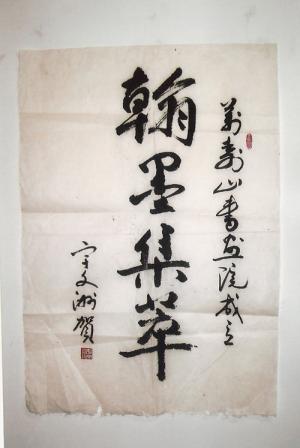 萬壽山書畫院成立
翰墨集萃
宇文洲賀